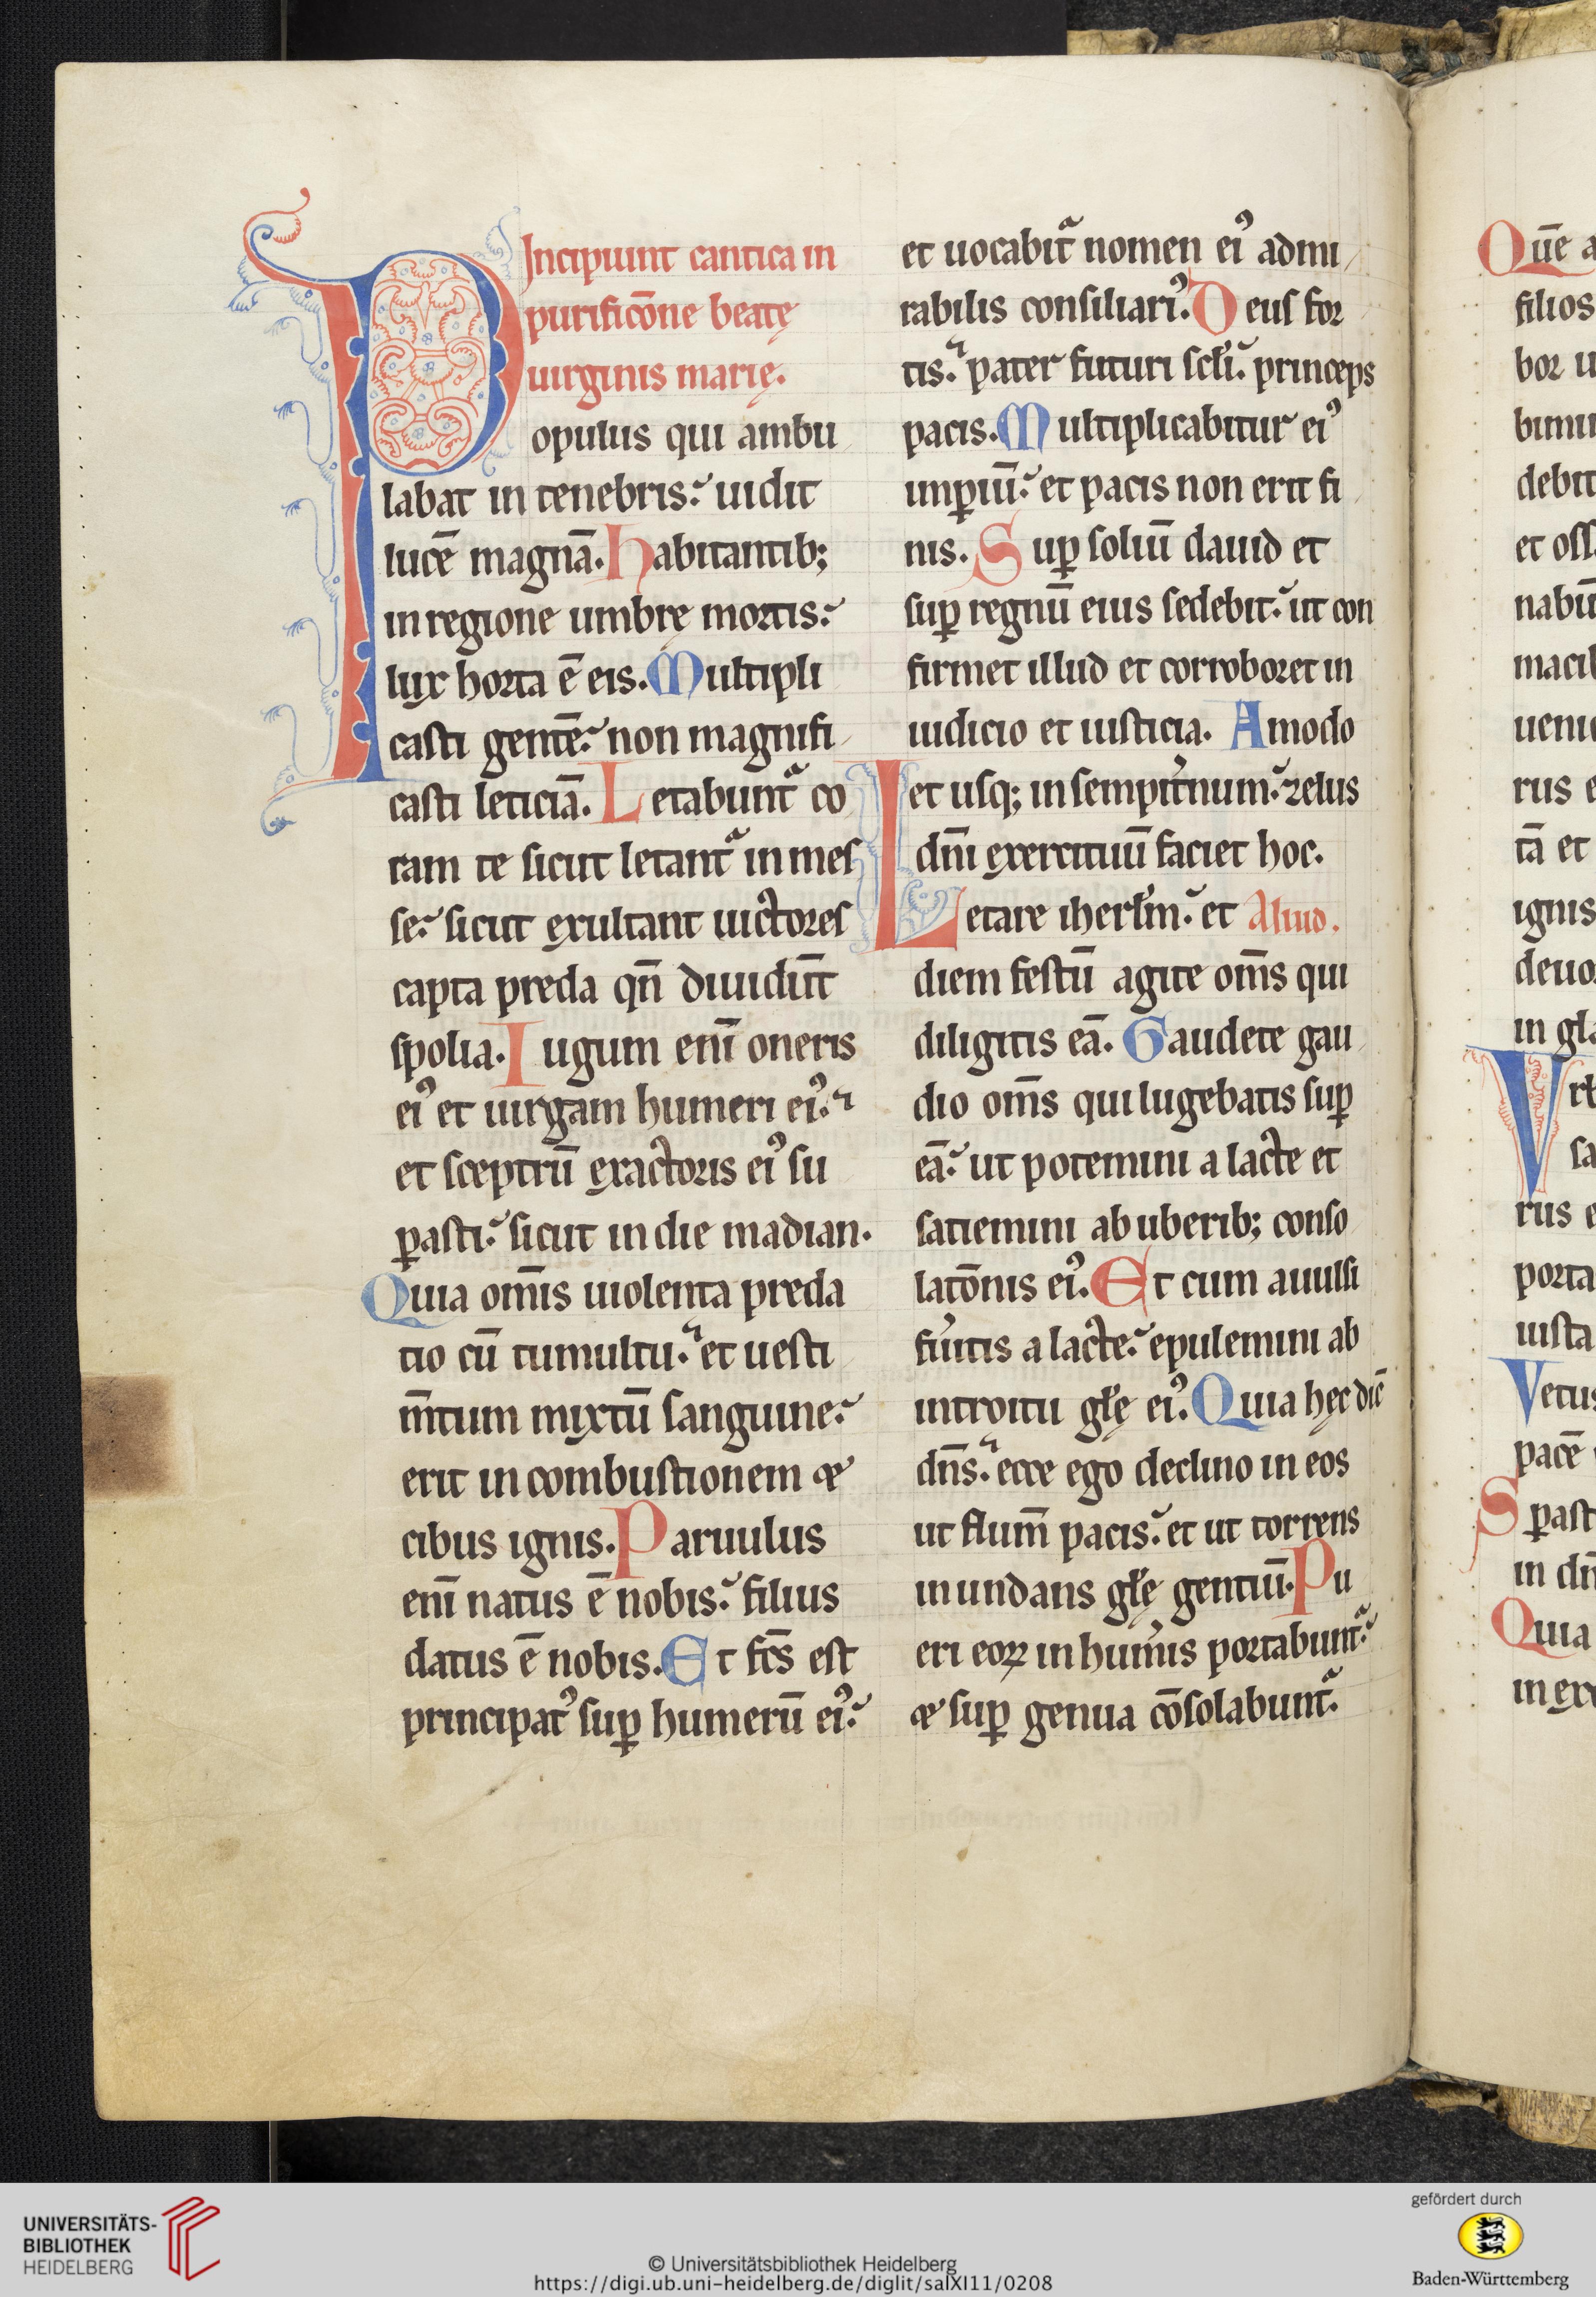 Incipiunt cantica in
purificōne beatę
uirginis marię.
Populus qui ambu
labat in tenebris. uidit
lucē magnā. Habitantib;
in regione umbrę mortis.
lux horta ē eis. Multipli
casti gentē. non magnifi
casti leticiā. Letabunt᷑ co
ram te sicut letant᷑ in mes
se. sicut exultant uictores
capta preda qn̄ diuidūt
spolia. Iugum enī oneris
eiꝰ et uirgam humeri eiꝰ.
et sceptrū exactoris eiꝰ su
ꝑasti. sicut in die madian.
Quia om̄is uiolenta preda
tio cū tumultu. et uesti
m̄tum mixtū sanguine.
erit in combustionem &
cibus ignis. Paruulus
enī natus ē nobis. filius
datus ē nobis. Et fc̄s est
principatꝰ suꝑ humerū eiꝰ.
et uocabit᷑ nomen eiꝰ admi
rabilis consiliariꝰ. Deus for
tis. pater futuri scl̄i. princeps
pacis. Multiplicabitur eiꝰ
imꝑiū. et pacis non erit fi
nis. Suꝑ soliū dauid et
suꝑ regnū eius sedebit. ut con
firmet illud et corroboret in
iudicio et iusticia. Amodo
et usq; in sempit̓num. zelus
dn̄i exercituū faciet hoc.
Letare iherl̄m. et Aliud.
diem festū agite om̄s qui
diligitis eā. Gaudete gau
dio om̄s qui lugebatis suꝑ
eā. ut potemini a lacte et
satiemini ab uberib; conso
latōnis eiꝰ. Et cum auulsi
fu̓itis a lacte. epulemini ab
introitu gl̄ę eiꝰ. Quia hęc dic̄
dn̄s. ecce ego declino in eos
ut flum̄ pacis. et ut torrens
inundans gl̄ę gentiū. Pu
eri eoꝝ in hum̓is portabunt᷑.
& suꝑ genua cōsolabunt᷑.
Quē a
filios
bor u
bimu
debit
et oss
nabū
macil
ueni
rus e
tā et
ignis
deuo
in gla
Vrb
sa
rus e
porta
iusta
Vetus
pacē
Sꝑast
in dn̄
Quia
in exc
UNIVERSITÄTS-
BIBLIOTHEK
HEIDELBERG
© Universitätsbibliothek Heidelberg
https://digi.ub.uni-heidelberg.de/diglit/salXI11/0208
gefördert durch
Baden-Württemberg